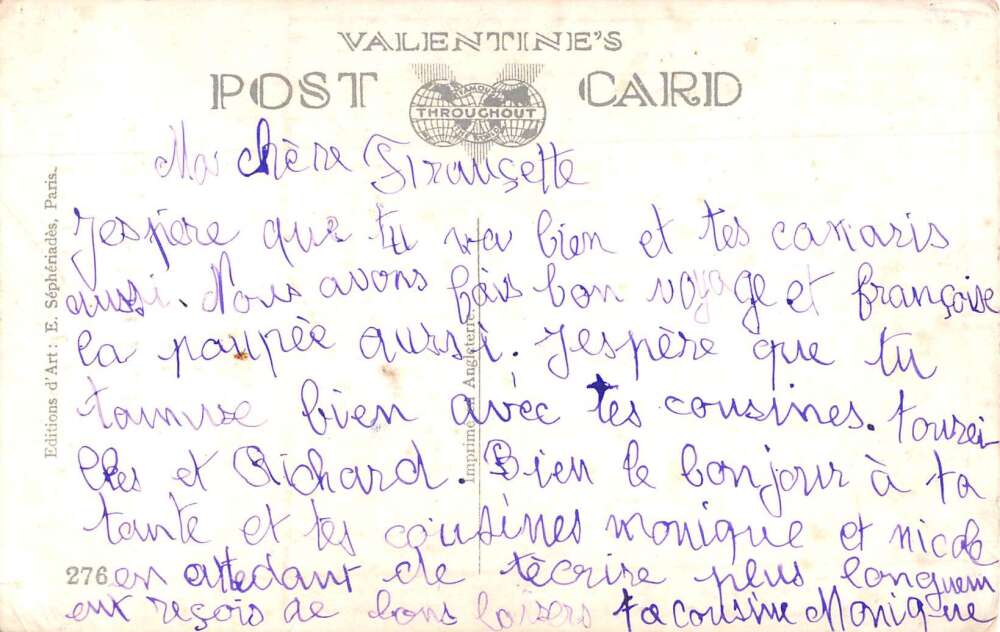 VALENTINE'S
POST CARD
FAMOUS
THROUGHOUT
THE WORLD
Ma chère Françette
Jespère que tu va bien et tes canaris
aussi. Nous avons fais bon voyage et françoise
la poupée aussi. Jespère que tu
tamuse bien avéc tes cousines.
lles et Richard. Bien le bonjour à ta
tante et tes cousines monique et nicole
en attedant de técrire plus longuem
ent reçois de bons baisers ta cousine Monique
276
Editions d'Art: E. Séphériadès, Paris.
Imprimé en Angleterre.